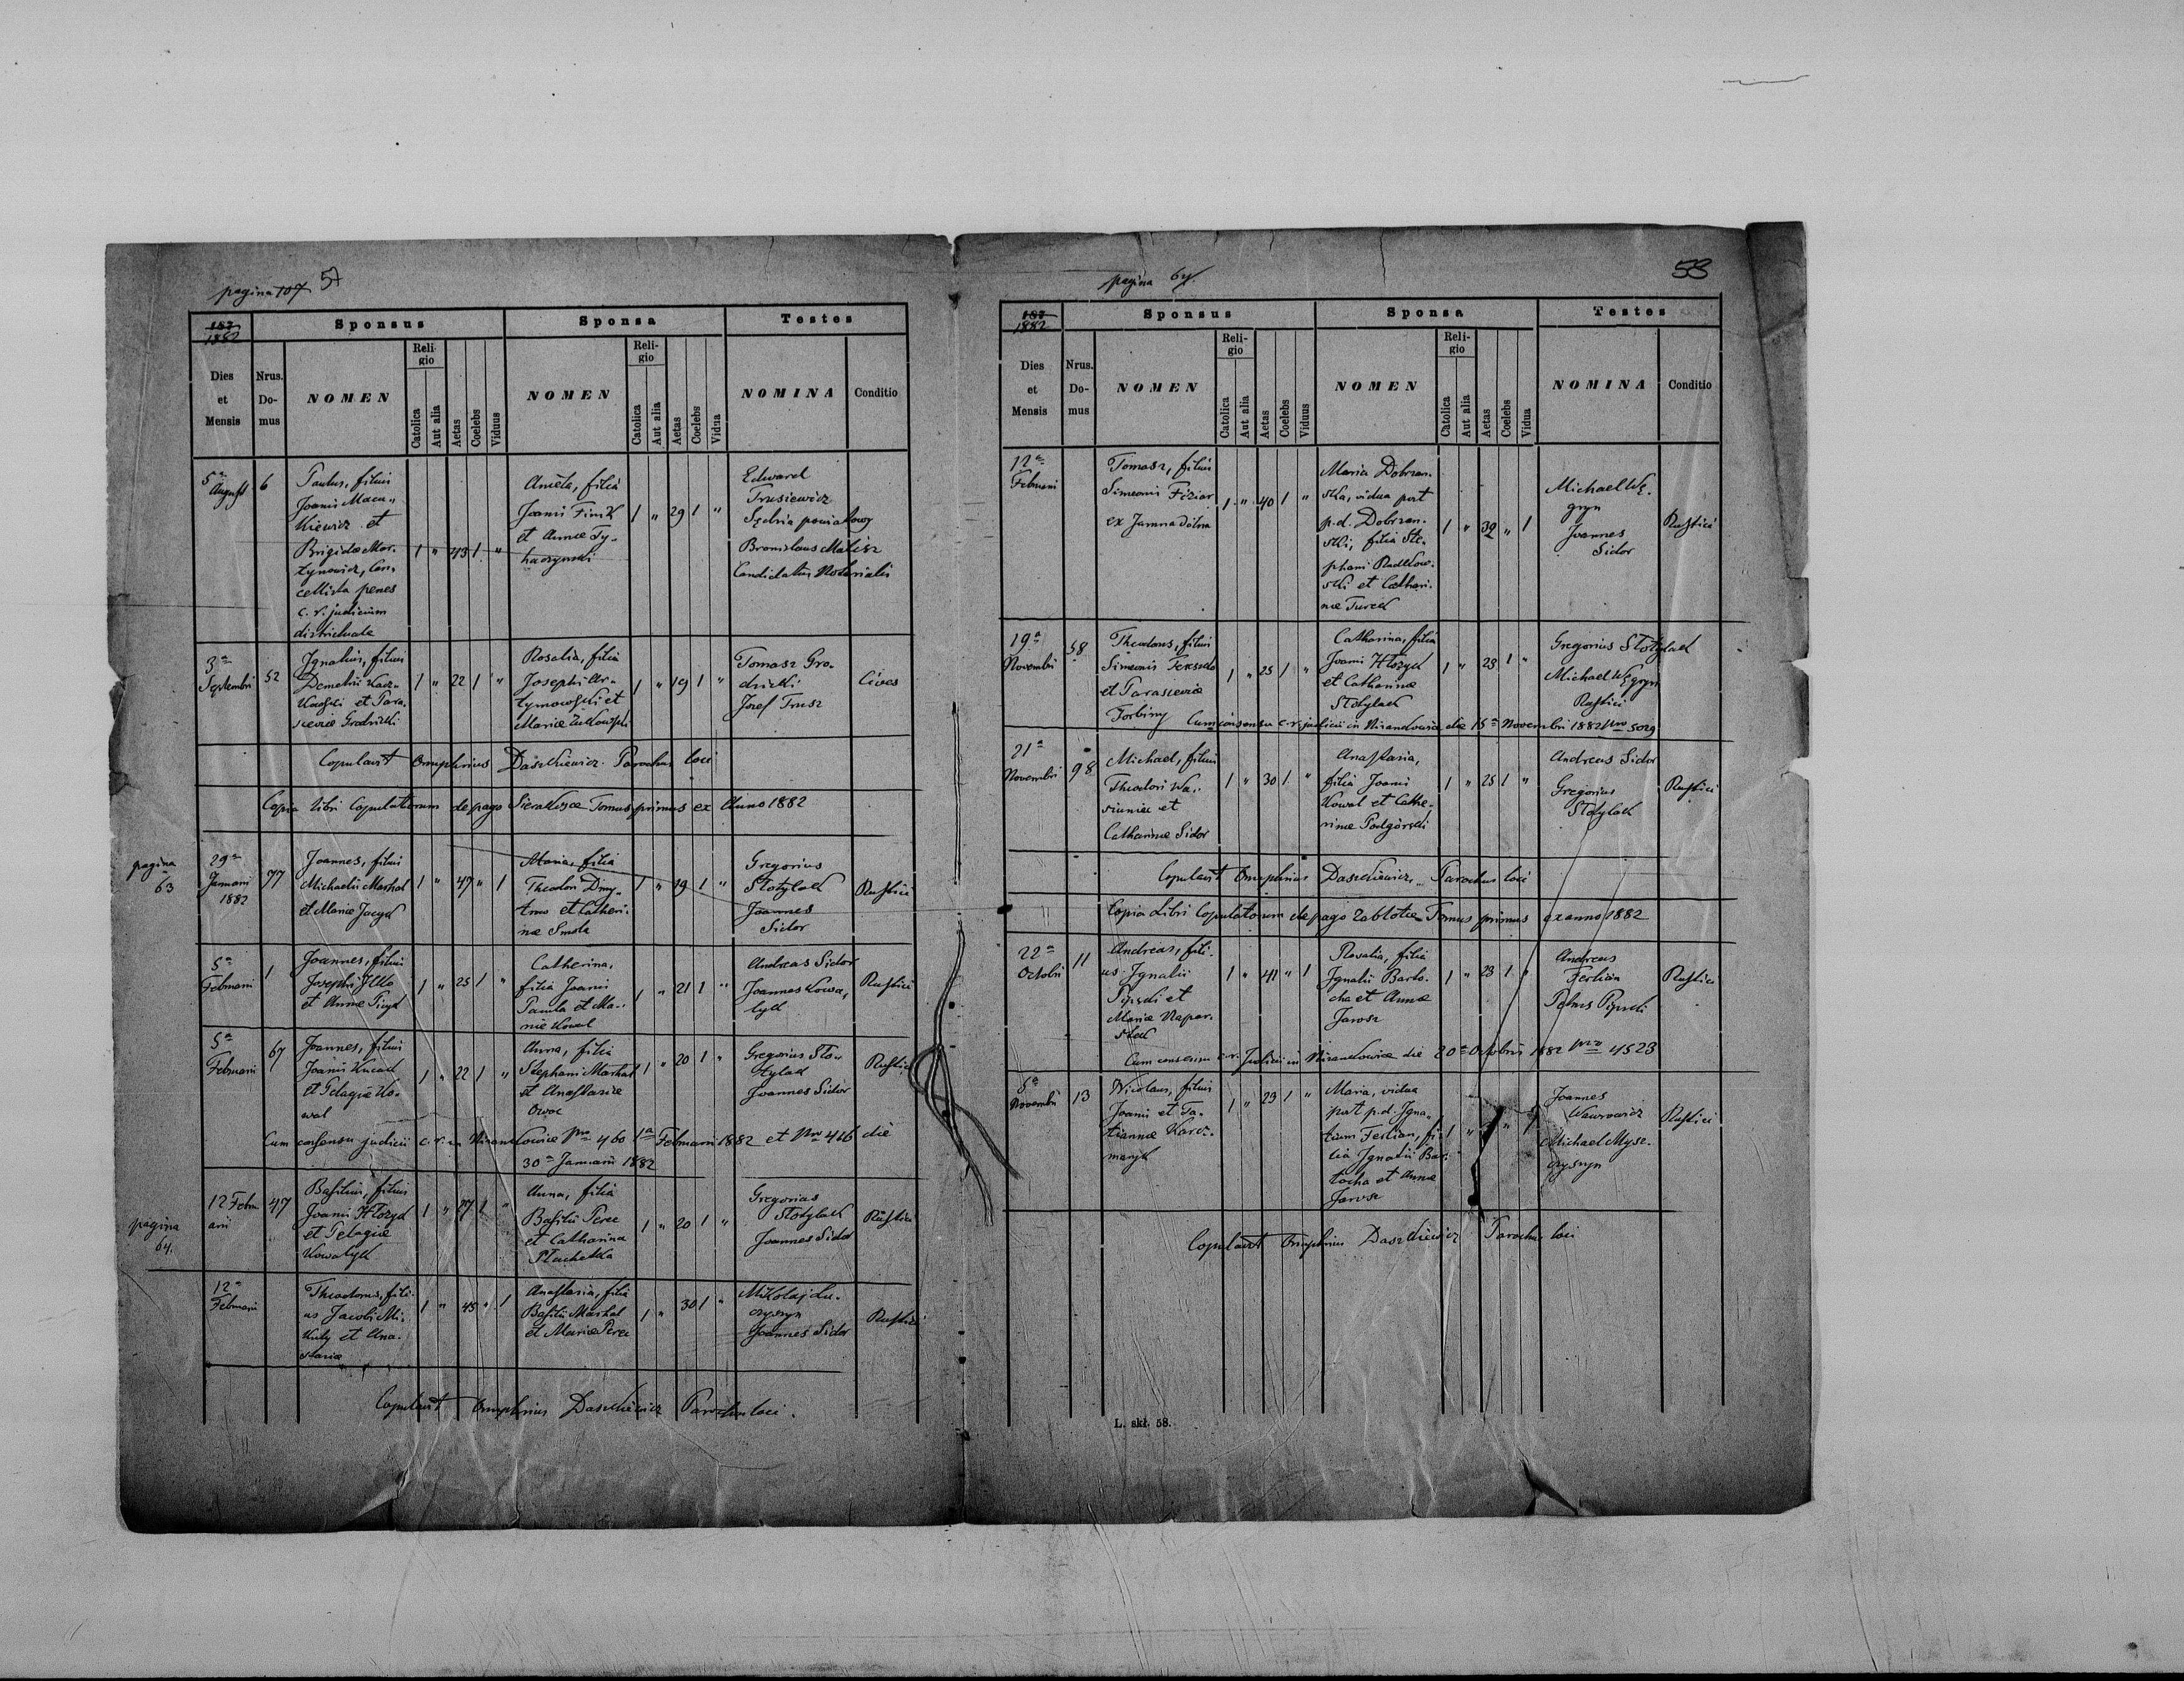 pagina 107 57
1882
Sponsus
Sponsa
Testes
Dies et Mensis
Nrus. Domus
NOMEN
Religio
Catolica
Aut alia
Aetas
Coelebs
Viduus
NOMEN
Religio
Catolica
Aut alia
Aetas
Coelebs
Vidua
NOMINA
Conditio
5a August
6
Paulus, filius
Joannis
et
Brigidae Mar-
tynowicz, Can-
cellista penes
c. r. judicium
districtuale
1 " 43 1 "
Aniela, filia
Joannis Finik
et Annae Ty-
haczynski
1 " 29 1 "
Edward
Trusiewicz
Sędzia powiatowy
Bronislaus Matisz
Candidatus Notarialis
3a
Septembri
52
Ignatius, filius
Demetrii
et Para-
sceviae Grodzicki
1 " 22 1 "
Rosalia, filia
Josephi Ar-
tymowski et
Mariae Zulkowski
1 " 19 1 "
Tomasz Gro-
dzicki
Josef Trusz
Cives
Copulavit Onuphrius Daszkiewicz Parochus loci
Copia Libri Copulatorum de pago Sierakosce Tomus primus ex Anno 1882
pagina
63
29a
Januarii
1882
77
Joannes, filius
Michaelis Marhal
et Mariae Jacyk
1 " 47 " 1
Maria, filia
Theodori Dmy-
tro et Catheri-
nae Smola
1 " 19 1 "
Gregorius
Stotylak
Joannes
Sidor
Rustici
5a
Februarii
1
Joannes, filius
Josephi Ilko
et Annae
1 " 25 1 "
Catherina,
filia Joannis
Pawla et Ma-
riae Kowal
1 " 21 1 "
Andreas Sidor
Joannes Kowa-
lyk
Rustici
5a
Februarii
67
Joannes, filius
Joannis Kucak
et Pelagiae Ko-
wal
1 " 22 1 "
Anna, filia
Stephani Marhal
et Anastasiae
Owoc
1 " 20 1 "
Gregorius Sto-
tylak
Joannes Sidor
Rustici
Cum consensu judicii c. r. in Nizankowice Nro 460 1a Februarii 1882 et Nro 416 die
30a Januarii 1882
pagina
64.
12 Febru
arii
47
Basilius, filius
Joannis Htozyk
et Pelagiae
Kowalyk
1 " 27 1 "
Anna, filia
Basilii Perec
et Catharina
1 " 20 1 "
Gregorius
Stotylak
Joannes Sidor
Rustici
12a
Februarii
Theodorus, fili-
us Jacobi Mi-
kuly et Ana-
stasiae
1 " 45 " 1
Anastasia, filia
Basilii Marhal
et Mariae Perec
1 " 30 1 "
Mikolaj Lu-
czyszyn
Joannes Sidor
Rustici
Copulavit Onuphrius Daszkiewicz Parochus loci.
pagina 64.
58
1882
Sponsus
Sponsa
Testes
Dies et Mensis
Nrus. Domus
NOMEN
Religio
Catolica
Aut alia
Aetas
Coelebs
Viduus
NOMEN
Religio
Catolica
Aut alia
Aetas
Coelebs
Vidua
NOMINA
Conditio
12a
Februarii
Tomasz, filius
Simeonis
ex Jamna Dolna
1 " 40 1 "
Maria Dobrzan-
ska, vidua post
p. d. Dobrzan-
ski, filia Ste-
phani Radkow-
ski et Cathari-
nae Turek
1 " 32 " 1
Michael Wę-
gryn
Joannes
Sidor
Rustici
19a
Novembri
58
Theodorus, filius
Simeonis
et Parasceviae
Torbiny
1 " 25 1 "
Catharina, filia
Joannis Htozyk
et Catharinae
Stotylak
1 " 23 1 "
Gregorius Stotylak
Michael Węgryn
Rustici
Cum consensu c. r. judicii in Nizankowice die 15a Novembri 1882 Nro 5029
21a
Novembri
98
Michael, filius
Theodori Wa-
siuniec et
Catharinae Sidor
1 " 30 1 "
Anastasia,
filia Joannis
Kowal et Cathe-
rinae Podgórski
1 " 25 1 "
Andreas Sidor
Gregorius
Stotylak
Rustici
Copulavit Onuphrius Daszkiewicz Parochus loci
Copia Libri Copulatorum de pago Zablotce Tomus primus ex anno 1882
22a
Octobri
11
Andreas, fili-
us Ignatii
Pipski et
Mariae Napar-
stek
1 " 41 " 1
Rosalia, filia
Ignatii Barto-
cha et Annae
Jarosz
1 " 23 1 "
Andreas
Ferlian
Petrus Pipski
Rustici
Cum consensu c. r. Judicii in Nizankowice die 20a Octobris 1882 Nro 4523
5a
Novembri
13
Nicolaus, filius
Joannis et Ta-
tiannae Karcz-
maryk
1 " 29 1 "
Maria, vidua
post p. d. Igna-
tium Ferlian, fi-
lia Ignatii Bar-
tocha et Annae
Jarosz
1 " " 1
Joannes
Wawrowicz
Michael Mysz-
czyszyn
Rustici
Copulavit Onuphrius Daszkiewicz Parochus loci
L. skł. 58.